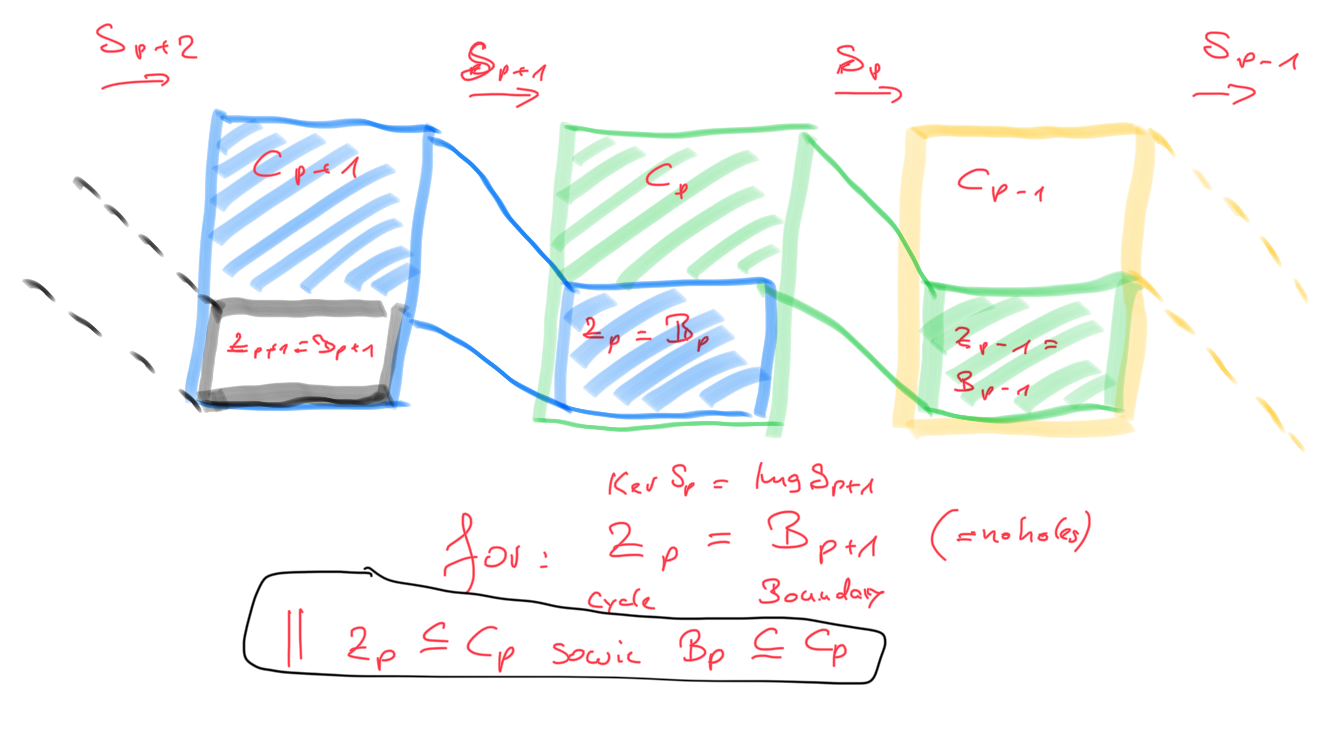 S p+2
S p+1
S p
S p-1
C p+1
C p
C p-1
Z p+1 = B p+1
Z p = B p
Z p-1 =
B p-1
Ker S p = Img S p+1
for: Z p = B p+1 (= no holes)
Cycle Boundary
|| Z p ⊆ C p sowie B p ⊆ C p